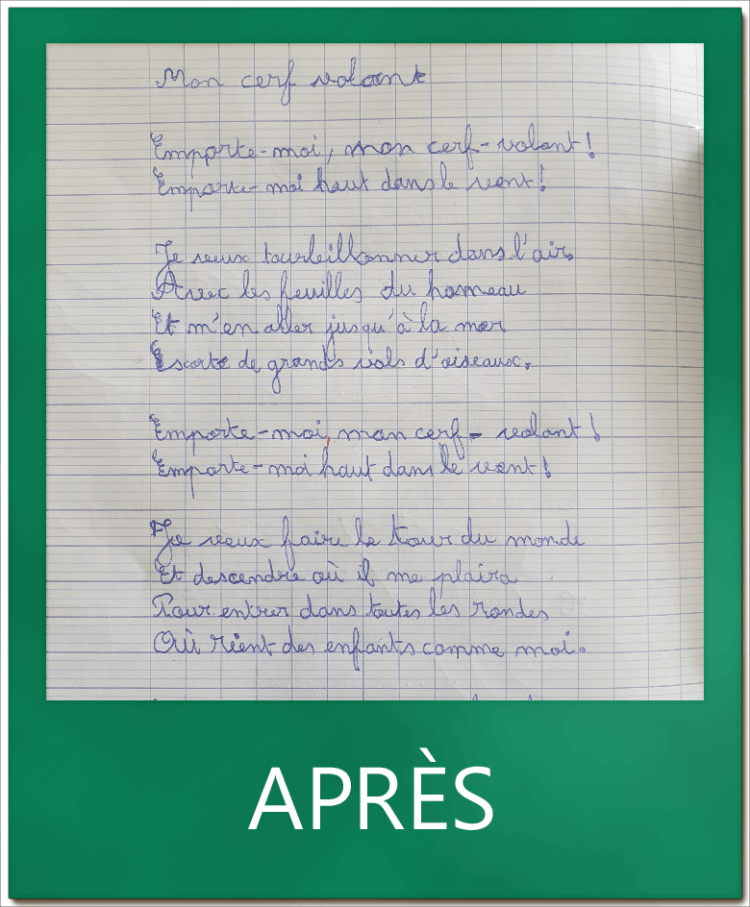 Mon cerf volant
Emporte-moi, mon cerf-volant !
Emporte-moi haut dans le vent !
Je veux tourbillonner dans l'air,
Avec les feuilles du hameau
Et m'en aller jusqu'à la mer
Escorte de grands vols d'oiseaux.
Emporte-moi, mon cerf-volant !
Emporte-moi haut dans le vent !
Je veux faire le tour du monde
Et descendre où il me plaira
Pour entrer dans toutes les rondes
Où rient des enfants comme moi.
APRÈS